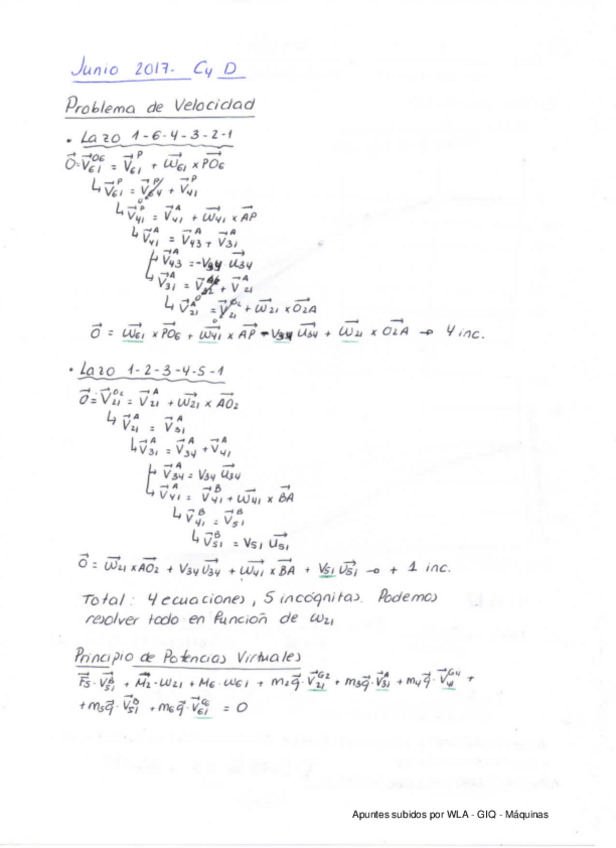 Junio 2017. C y D
Problema de Velocidad
• Lazo 1-6-4-3-2-1
0⃗=V⃗₆₁^O6 = V⃗₆₁^P + ω⃗₆₁ × PO₆
↳ V⃗₆₁^P = V⃗₆₄^P + V⃗₄₁^P
↳ V⃗₄₁^P = V⃗₄₁^A + ω⃗₄₁ × AP
↳ V⃗₄₁^A = V⃗₄₃^A + V⃗₃₁^A
↳ V⃗₄₃^A = -V₃₄ u⃗₃₄
↳ V⃗₃₁^A = V⃗₃₂^A + V⃗₂₁^A
↳ V⃗₂₁^A = V⃗₂₁^O2 + ω⃗₂₁ × O₂A
0⃗ = ω⃗₆₁ × PO₆ + ω⃗₄₁ × AP - V₃₄ u⃗₃₄ + ω⃗₂₁ × O₂A → 4 inc.
• Lazo 1-2-3-4-5-1
0⃗ = V⃗₂₁^O2 = V⃗₂₁^A + ω⃗₂₁ × AO₂
↳ V⃗₂₁^A = V⃗₃₁^A
↳ V⃗₃₁^A = V⃗₃₄^A + V⃗₄₁^A
↳ V⃗₃₄^A = V₃₄ u⃗₃₄
↳ V⃗₄₁^A = V⃗₄₁^B + ω⃗₄₁ × BA
↳ V⃗₄₁^B = V⃗₅₁^B
↳ V⃗₅₁^B = V₅₁ u⃗₅₁
0⃗ = ω⃗₂₁ × AO₂ + V₃₄ u⃗₃₄ + ω⃗₄₁ × BA + V₅₁ u⃗₅₁ → + 1 inc.
Total: 4 ecuaciones, 5 incógnitas. Podemos
resolver todo en función de ω₂₁
Principio de Potencias Virtuales
F⃗₅·V⃗₅₁^B + M⃗₂·ω₂₁ + M₆·ω₆₁ + m₂g⃗·V⃗₂₁^G2 + m₃g⃗·V⃗₃₁^A + m₄g⃗·V⃗₄₁^G4 +
+ m₅g⃗·V⃗₅₁^B + m₆g⃗·V⃗₆₁^G6 = 0
Apuntes subidos por WLA - GIQ - Máquinas